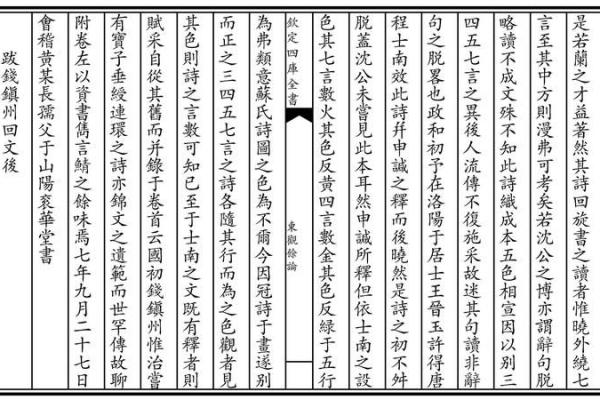 是若蘭之才益著然其詩回旋書之讀者惟曉外繞七
言至其中方則漫弗可考矣若沈公之博亦謂辭句脫
略讀不成文殊不知此詩織成本五色相宣因以別三
四五七言之異後人流傳不復施采故迷其句讀非辭
句之脫畧也政和初予在洛陽于居士王晉玉許得唐
程士南效此詩幷申諴之釋而後曉然是詩之初不舛
脱蓋沈公未嘗見此本耳然申諴所釋但依士南之設
色其七言數火其色反黄四言數金其色反緑于五行
欽定四庫全書
東觀餘論
為弗類意蘇氏詩圖之色為不爾今因冠詩于畫遂别
而正之三四五七言之詩各隨其行而為之色觀者見
其色則詩之言數可知已至于士南之文既有釋者則
賦采自從其舊而并錄于卷首云國初錢鎮州惟治嘗
有寶子垂綬連環之詩亦錦文之遺範而世罕傳故聊
附卷左以資書雋言鯖之餘味焉七年九月二十七日
會稽黄某長孺父于山陽裒華堂書
跋錢鎮州回文後